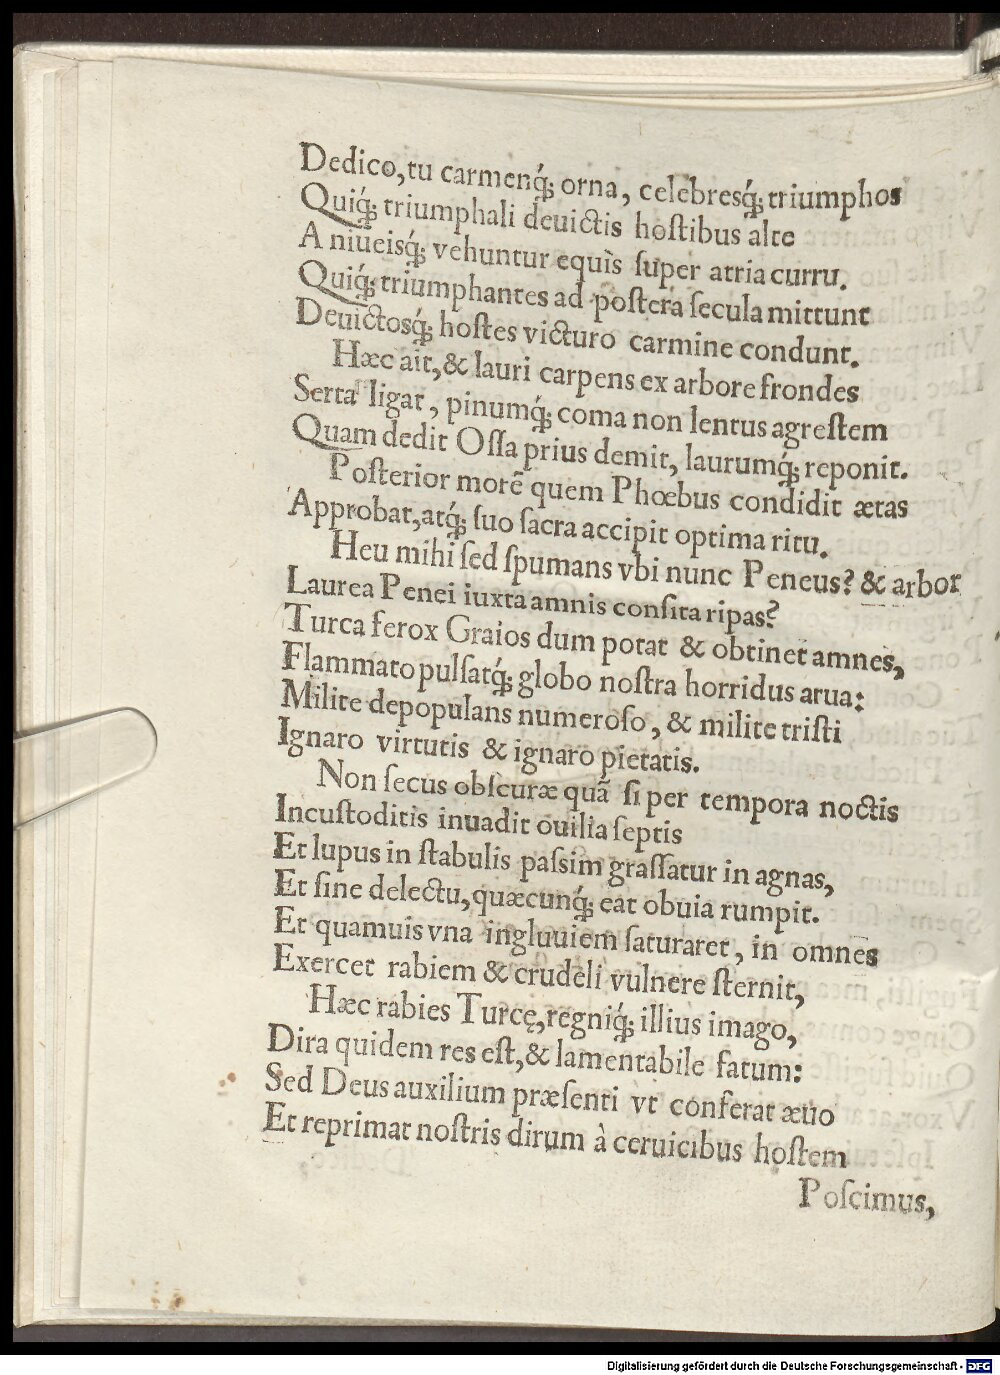 Dedico, tu carmenq́; orna, celebresq́; triumphos
Quiq́; triumphali deuictis hoſtibus alte
A niueisq́; vehuntur equis ſuper atria curru.
Quiq́; triumphantes ad poſtera ſecula mittunt
Deuictosq́; hoſtes victuro carmine condunt.
Hæc ait, & lauri carpens ex arbore frondes
Serta ligat, pinumq́; coma non lentus agreſtem
Quam dedit Oſſa prius demit, laurumq́; reponit.
Poſterior morē quem Phœbus condidit ætas
Approbat, atq́; ſuo ſacra accipit optima ritu.
Heu mihi ſed ſpumans vbi nunc Peneus? & arbor
Laurea Penei iuxta amnis conſita ripas?
Turca ferox Graios dum potat & obtinet amnes,
Flammato pulſatq́; globo noſtra horridus arua:
Milite depopulans numeroſo, & milite triſti
Ignaro virtutis & ignaro pietatis.
Non ſecus obſcuræ quā ſi per tempora noctis
Incuſtoditis inuadit ouilia ſeptis
Et lupus in ſtabulis paſsim graſſatur in agnas,
Et ſine delectu, quæcunq́; eat obuia rumpit.
Et quamuis vna ingluuiem ſaturaret, in omnes
Exercet rabiem & crudeli vulnere ſternit,
Hæc rabies Turcę, regniq́; illius imago,
Dira quidem res eſt, & lamentabile fatum:
Sed Deus auxilium præſenti vt conferat æuo
Et reprimat noſtris dirum à ceruicibus hoſtem
Poſcimus,
Digitalisierung gefördert durch die Deutsche Forschungsgemeinschaft - DFG